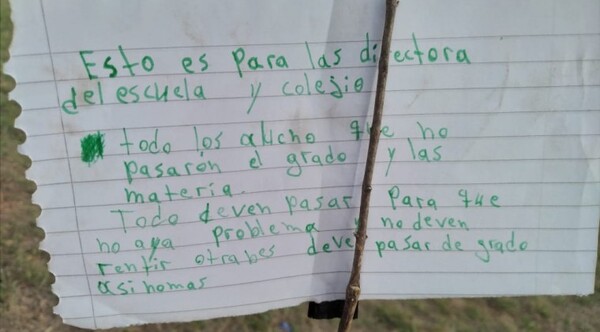 Esto es para las directora
del escuela y colegio
todo los alucno que no
pasaron el grado y las
materia.
Todo deven pasar para que
no aya problema y no deven
rentir otrabes deven pasar de grado
asi nomas